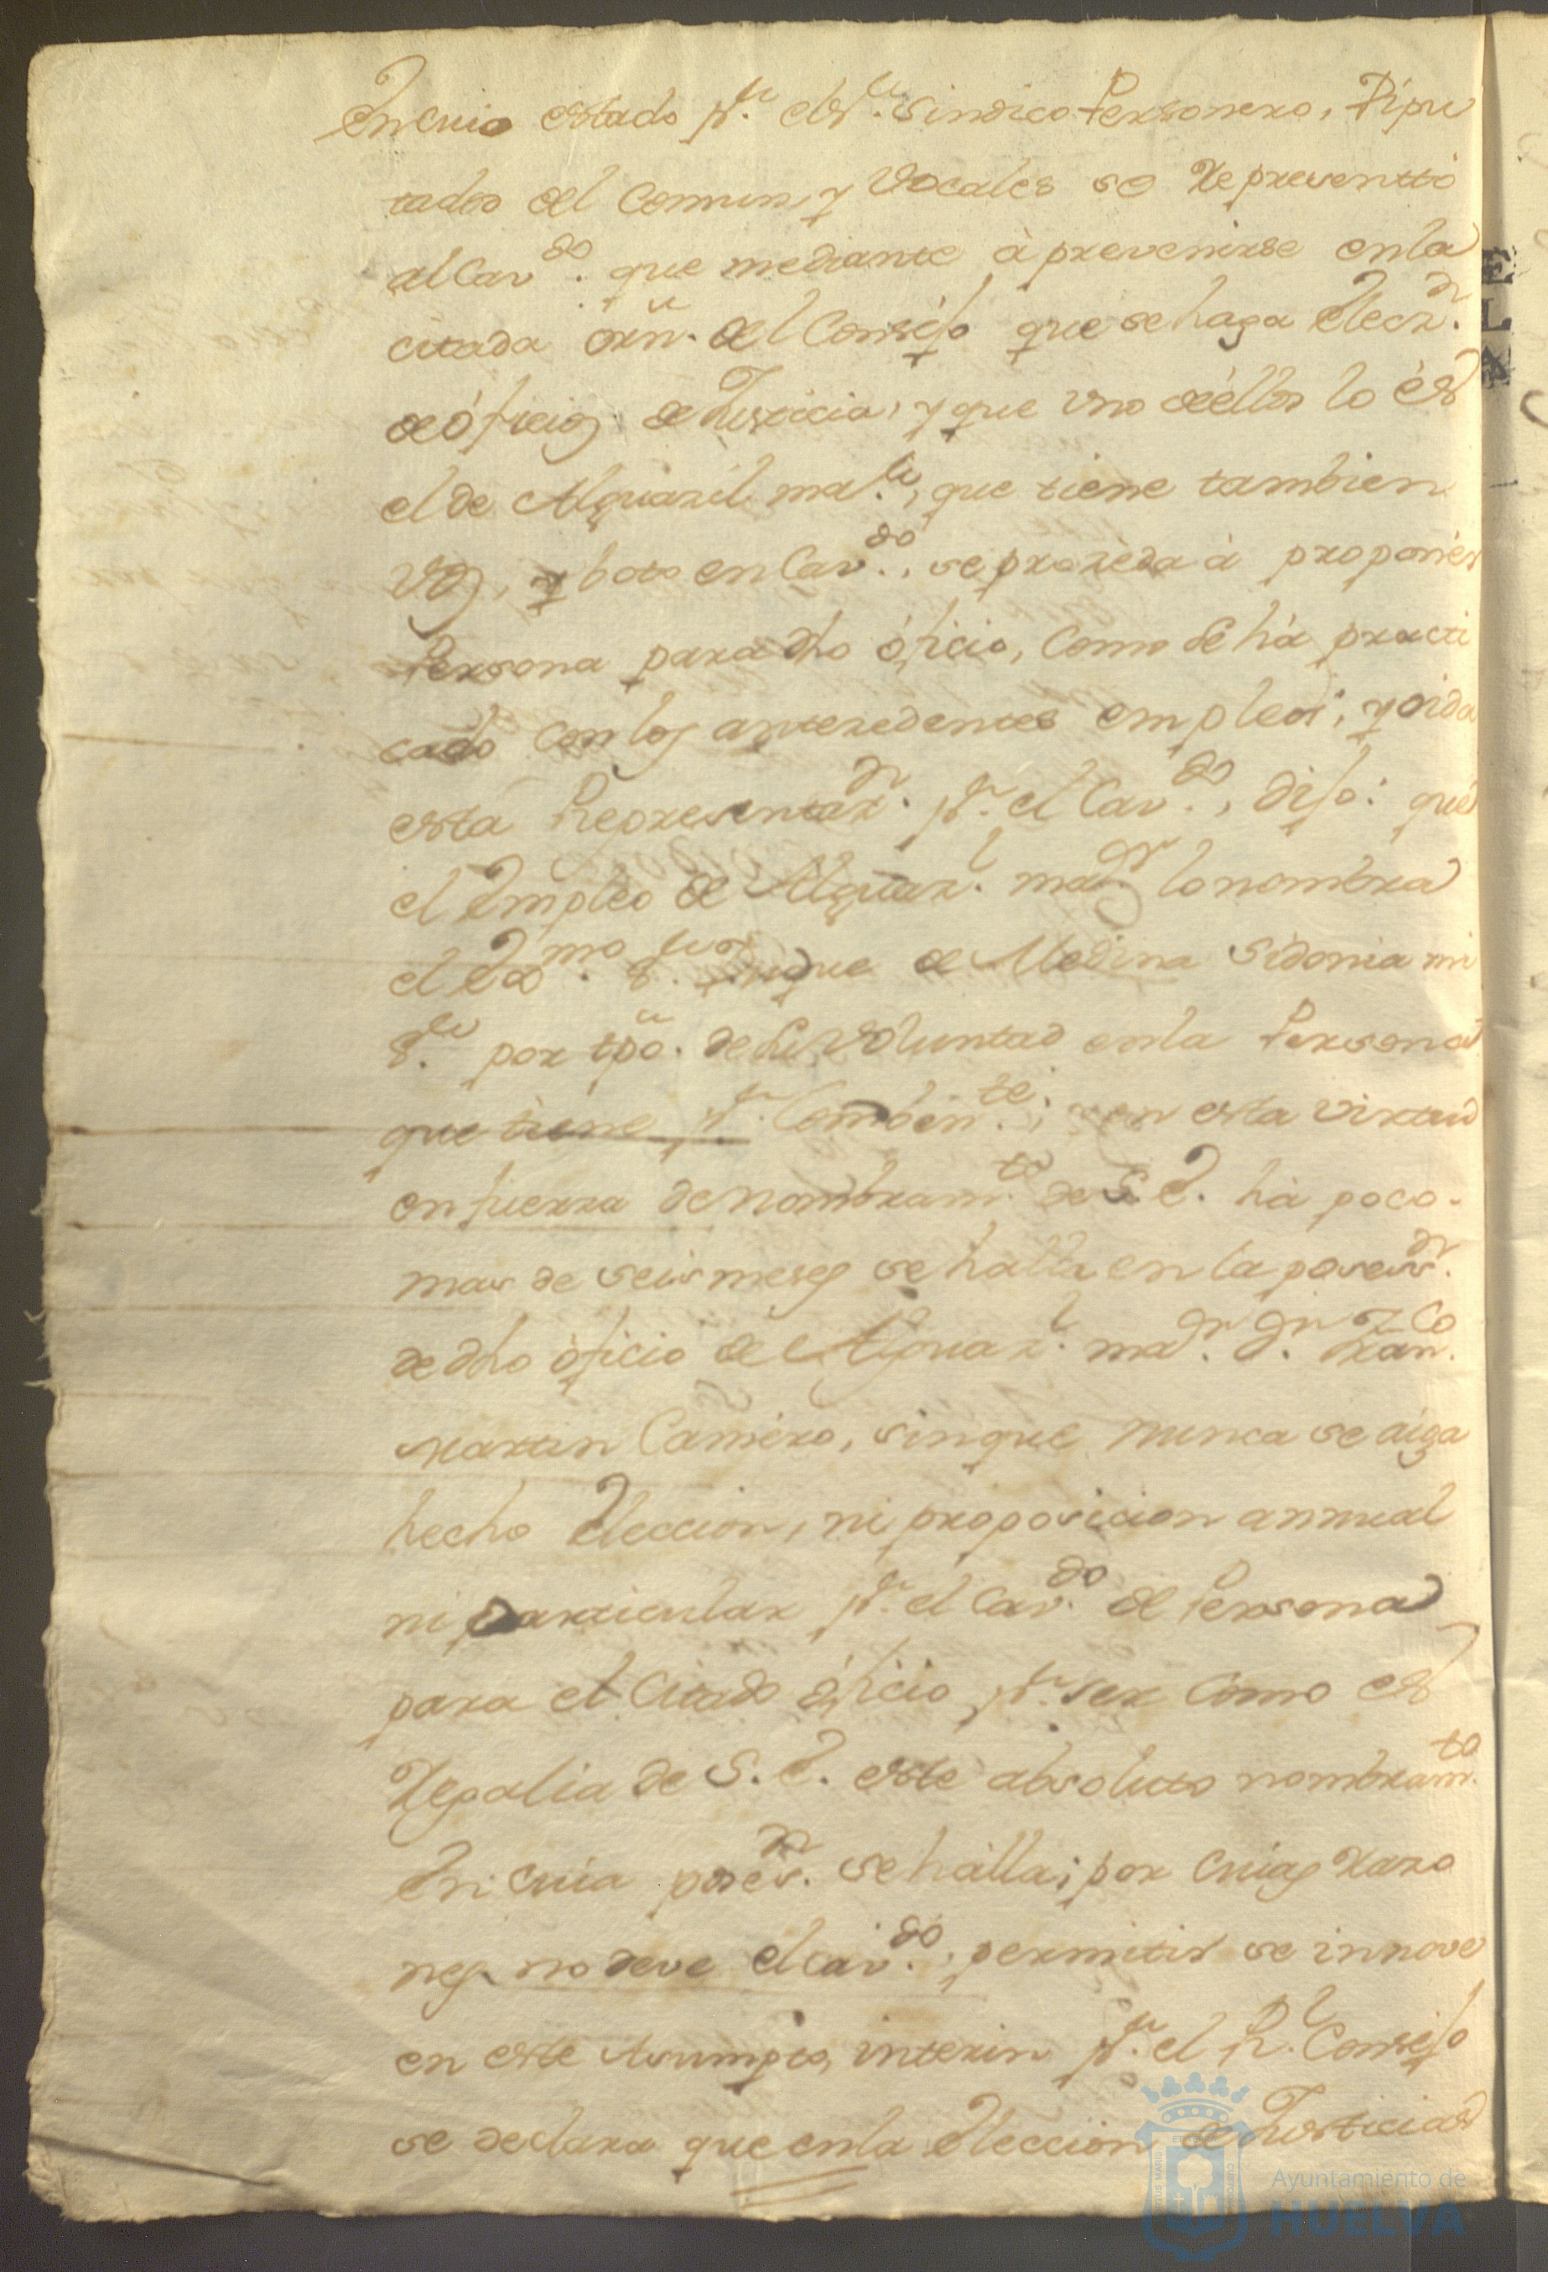 En cuio estado pr. el Sr. Sindico Personero, Dipu
tados del Comun, y Vocales se Representtó
al Cavdo. que mediante à prevenirse en la
citada orñ. del Consejo que se haga Elecn.
de óficios de Justicia, y que uno de éllos lo és
el de Alguazil mar., que tiene tambien
voz, y boto en Cavdo., se prozeda à proponer
Persona para dho óficio, como se hà practi
cado con los antezedentes empleos; y oida
esta Representazn. pr. el Cavdo., dijo: que
el Empleo de Alguazl. mаor. lo nombra
el Exmo. Sr. Duque de Medina Sidonia mi
Sr. por tpõ. de su voluntad en la Persona
que tiene pr. combente.; y en esta virtud
en fuerza de nombramto. de S. E. hà poco
mas de seis meses se halla en la posesn.
de dho óficio de Alguazl. maor. Dn. Franco.
Martin Caméro, sin que nunca se aiga
hecho Eleccion, ni proposicion annual
ni particular pr. el Cavdo. de Persona
para el citado óficio, pr. ser como es
Regalia de S. E. este absoluto nombramto.
En cuia posesn. se hàlla; por cuias razo
nes no deve el Cavdo., permitir se innove
en este Asumpto, interin pr. el Rl. Consejo
se declara que en la Eleccion de Justicias
Ayuntamiento de
HUELVA